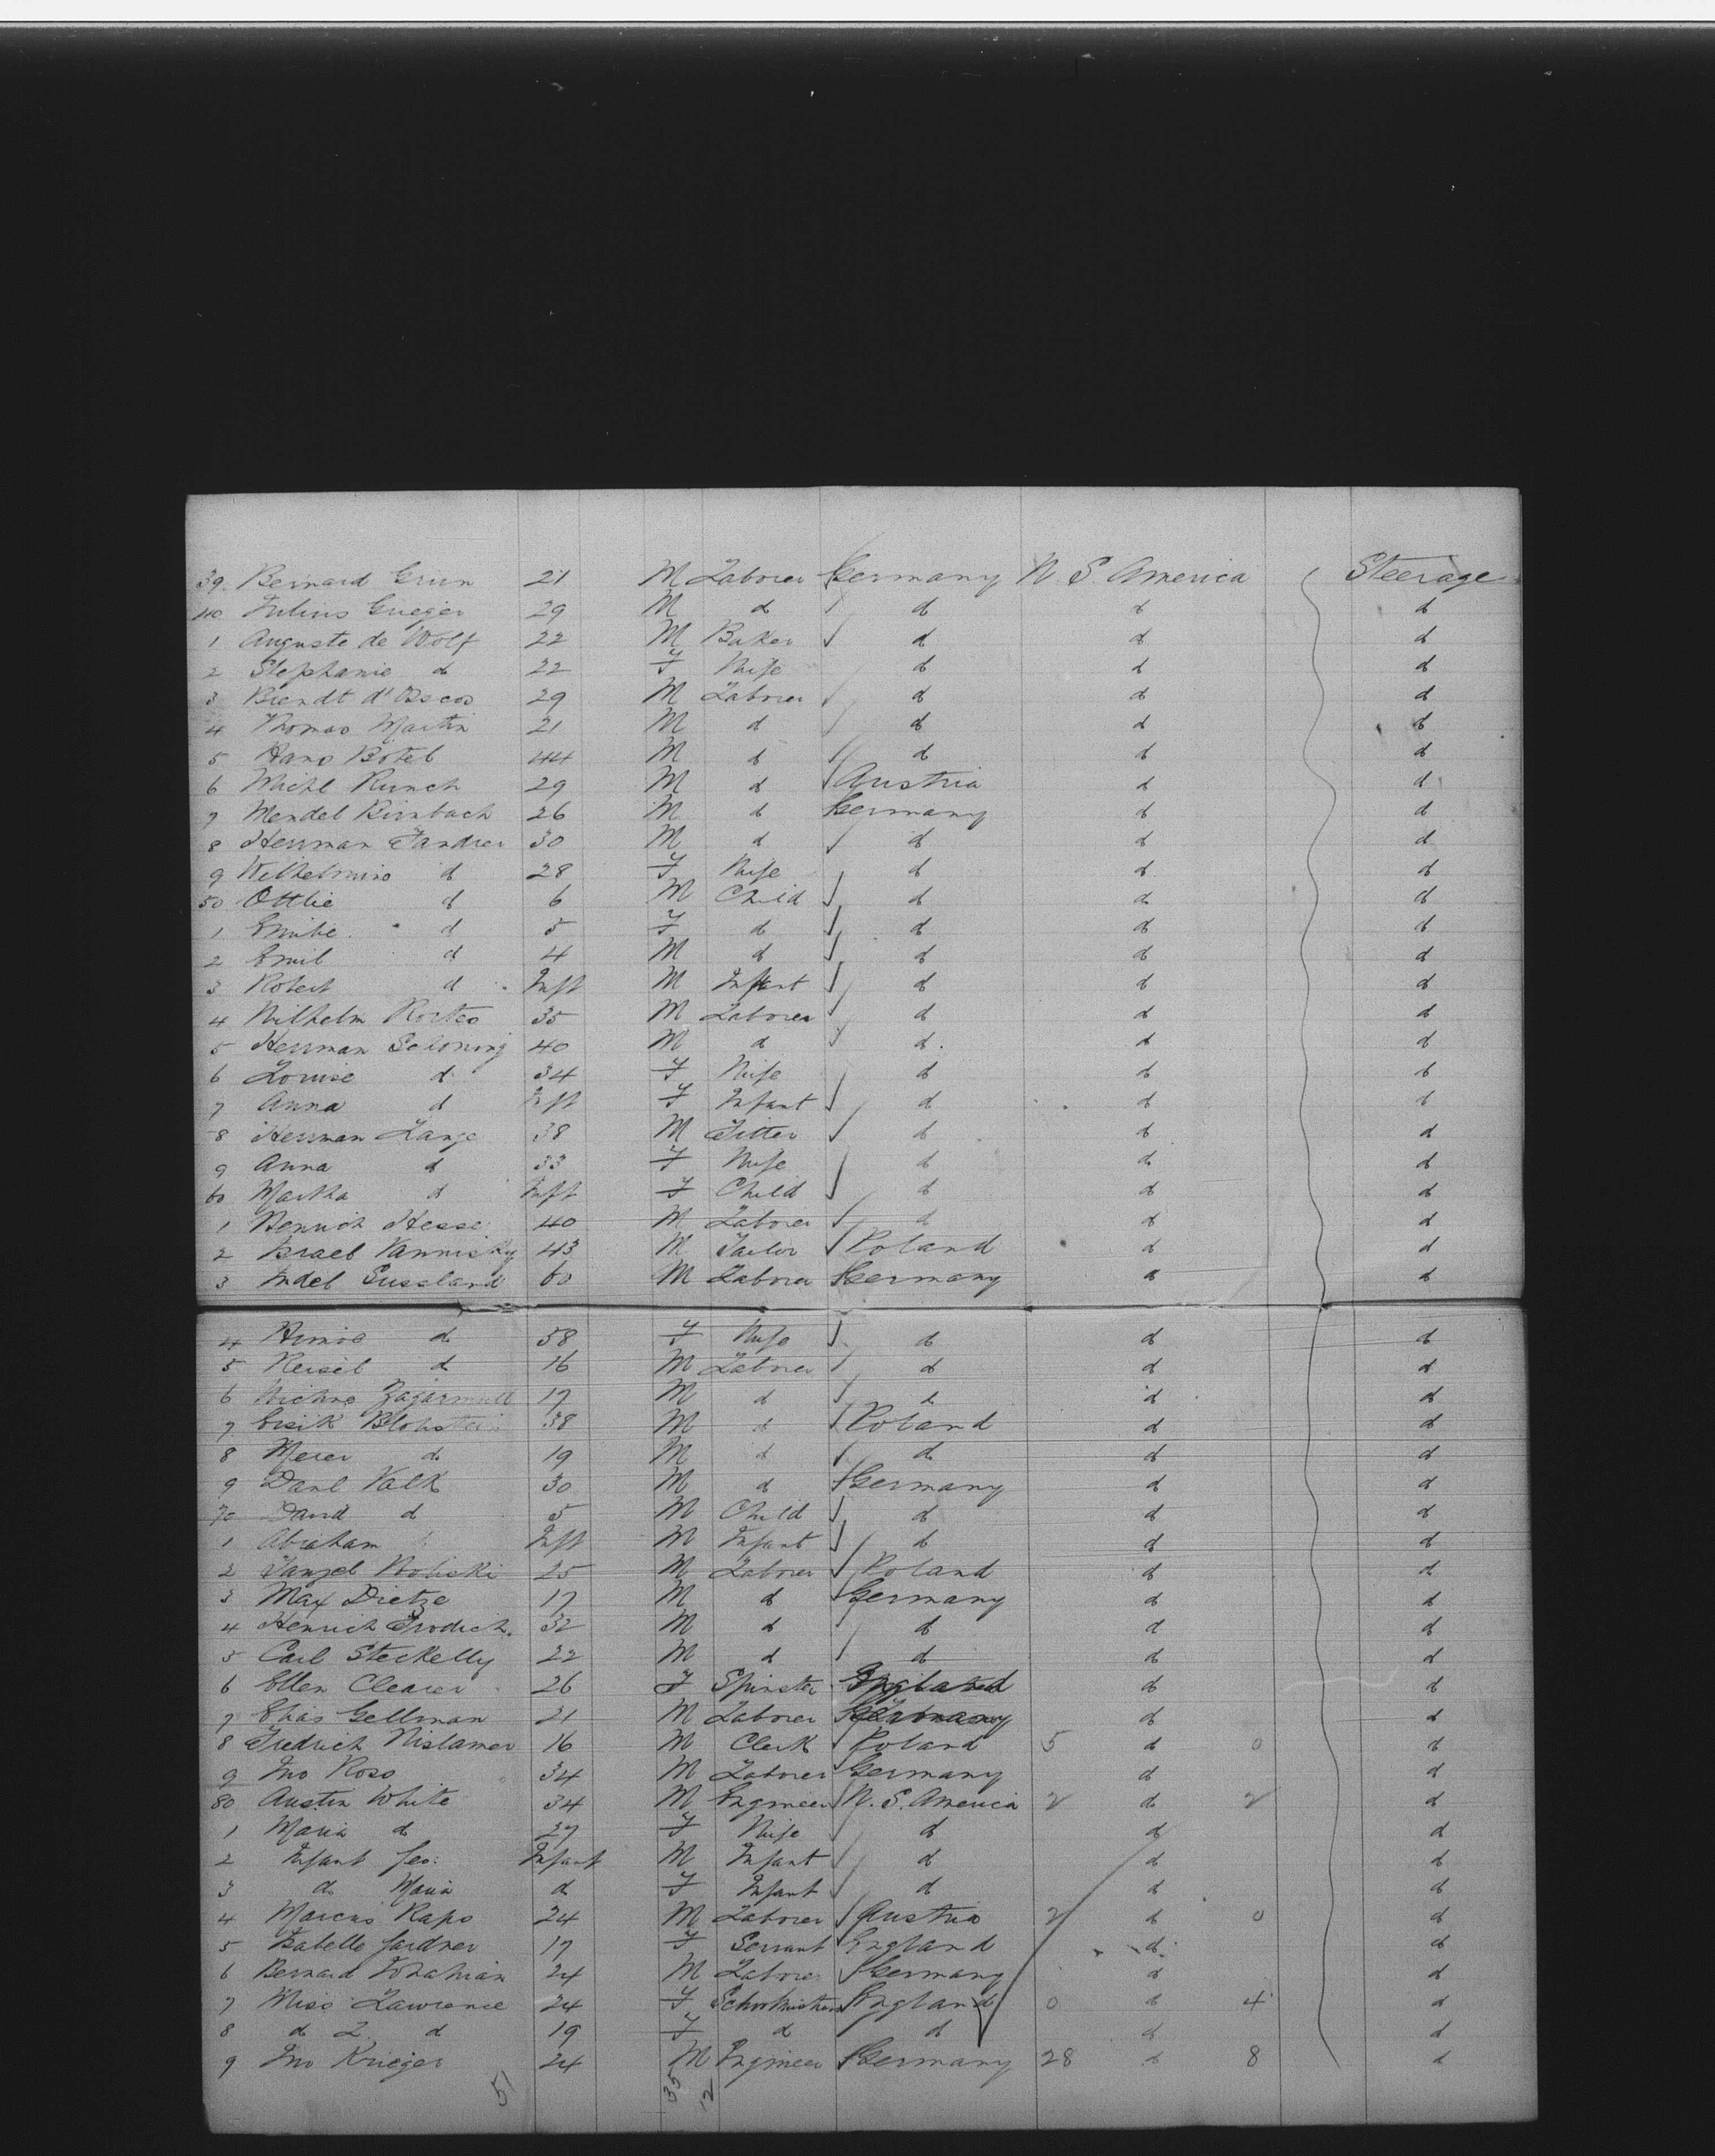 39. Bernard Grun 21 M Laborer Germany N. S. America Steerage
40 Julius Grieger 29 M d d d d
1 Auguste de Wolf 22 M Baker d d d
2 Stephanie d 22 F Wife d d d
3 29 M Laborer d d d
4 Thomas Martin 21 M d d d d
5 Hans Botel 44 M d d d d
6 29 M d Austria d d
7 Mendel Birnbach 26 M d Germany d d
8 Herrman 30 M d d d d
9 d 28 F Wife d d d
50 Ottlie d 6 M Child d d d
1 d 5 F d d d d
2 Emil d 4 M d d d d
3 Robert d Inft M Infant d d d
4 Wilhelm 35 M Laborer d d d
5 Herrman 40 M d d. d d
6 Louise d 34 F Wife d d d
7 Anna d Inft F Infant d d d
8 Herrman Lange 38 M Fitter d d d
9 Anna d 33 F Wife d d d
60 Martha d Inft F Child d d d
1 Henrich Hesse 40 M Laborer d d d
2 Israel 43 M Tailor Poland d d
3 60 M Laborer Germany d d
4 d 58 F Wife d d d
5 d 16 M Laborer d d d
6 17 M d d d d
7 38 M d Poland d d
8 Meier d 19 M d d d d
9 Danl Valk 30 M d Germany d d
70 David d 5 M Child d d d
1 Abraham Inft M Infant d d d
2 25 M Laborer Poland d d
3 Max Dietze 17 M d Germany d d
4 Henrich 32 M d d d d
5 Carl Steckelly 22 M d d d d
6 Ellen 26 F Spinster England d d
7 Gellman 21 M Laborer Germany d d
8 Fredrich 16 M Clerk Poland 5 d 0 d
9 Jno Ross 34 M Laborer Germany d d
80 Austin White 34 M Engineer N. S. America 2 d 2 d
1 Maria d 27 F Wife d d d
2 Infant Geo: Infant M Infant d d d
3 d Maria d F Infant d d d
4 Marcus Raps 24 M Laborer Austria 2 d 0 d
5 Isabella Gardner 17 F Servant England d d
6 Bernard 24 M Laborer Germany d d
7 Miss Lawrence 24 F England 0 d 4 d
8 d L. d 19 F d d d d
9 Jno Krieger 24 M Engineer Germany 28 d 8 d
51 35 12